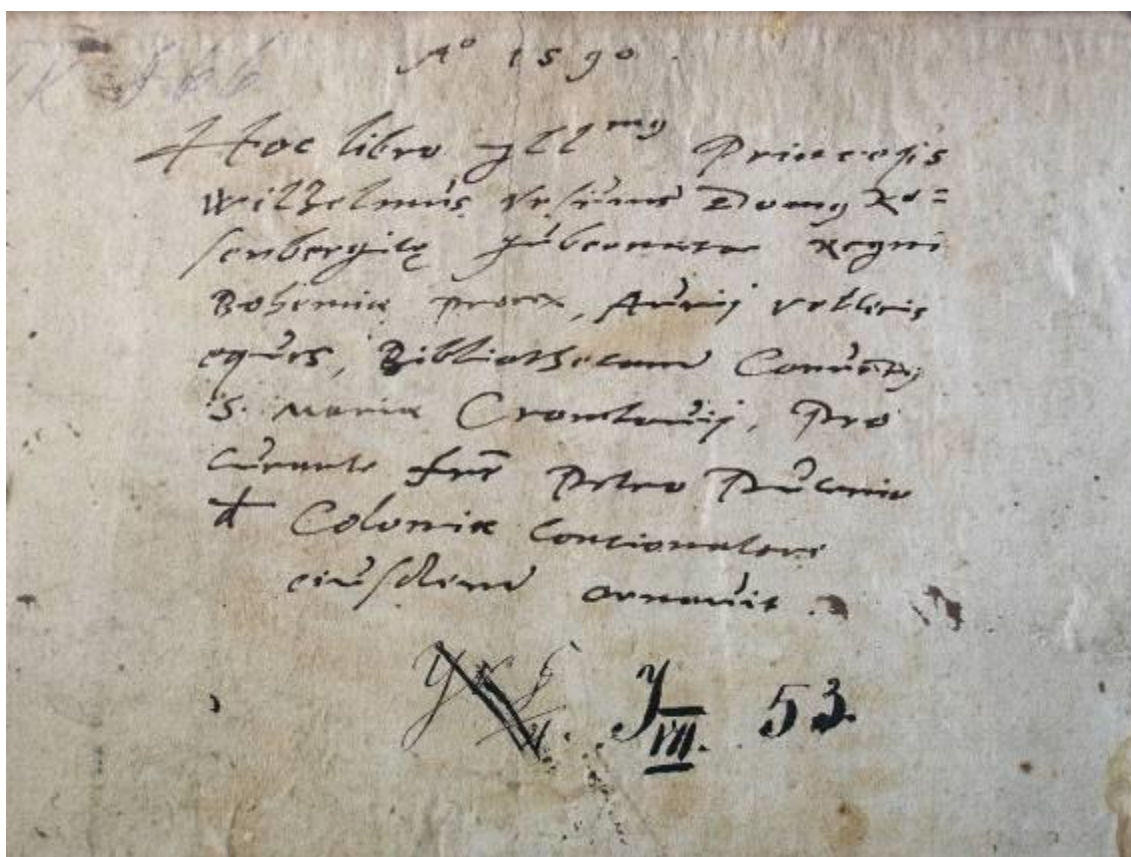 Aº 1590.
Hoc libro Yllmꝰ Princeps
Wilhelmus Vrsinus Domꝰ Ro=
senbergicę gubernator Regni
Bohemiæ prorex, Aurij velleris
eques, Bibliothecam Conuentꝰ
S. Mariæ Cromlouij, pro
curante frē Petro
à Coloniæ concionatore
eiusdem ornauit.
Y VII. 53.